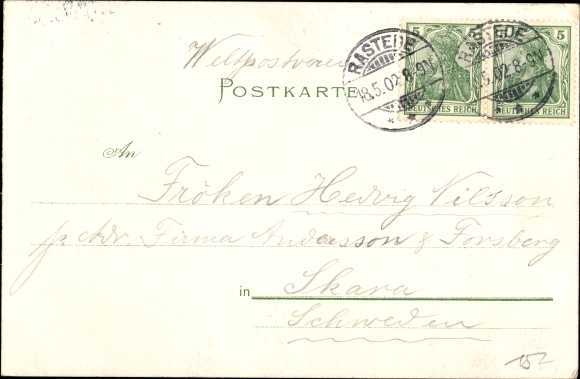 5 5
RASTEDE RASTEDE
Weltpostverein
18.5.02.8-9V. 5.02.8-9V.
POSTKARTE
DEUTSCHES REICH DEUTSCHES REICH
An
Fröken Hedvig Nilsson
p. Adr. Firma Andersson & Forsberg
in Skara
Schweden